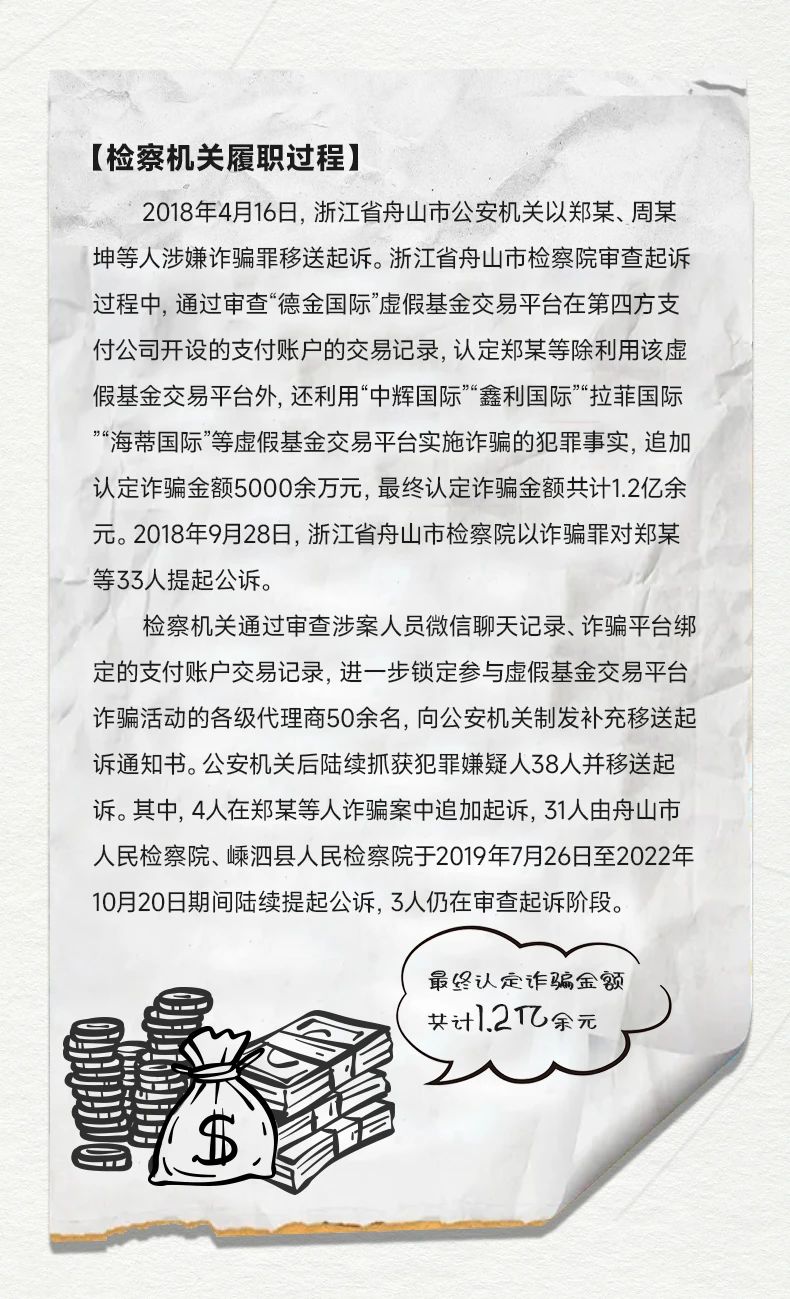 【检察机关履职过程】
2018年4月16日, 浙江省舟山市公安机关以郑某、周某
坤等人涉嫌诈骗罪移送起诉。浙江省舟山市检察院审查起诉
过程中, 通过审查“德金国际”虚假基金交易平台在第四方支
付公司开设的支付账户的交易记录, 认定郑某等除利用该虚
假基金交易平台外, 还利用“中辉国际”“鑫利国际”“拉菲国际
”“海蒂国际”等虚假基金交易平台实施诈骗的犯罪事实, 追加
认定诈骗金额5000余万元, 最终认定诈骗金额共计1.2亿余
元。2018年9月28日, 浙江省舟山市检察院以诈骗罪对郑某
等33人提起公诉。
检察机关通过审查涉案人员微信聊天记录、诈骗平台绑
定的支付账户交易记录, 进一步锁定参与虚假基金交易平台
诈骗活动的各级代理商50余名, 向公安机关制发补充移送起
诉通知书。公安机关后陆续抓获犯罪嫌疑人38人并移送起
诉。其中, 4人在郑某等人诈骗案中追加起诉, 31人由舟山市
人民检察院、嵊泗县人民检察院于2019年7月26日至2022年
10月20日期间陆续提起公诉, 3人仍在审查起诉阶段。
最终认定诈骗金额
共计1.2亿余元
$